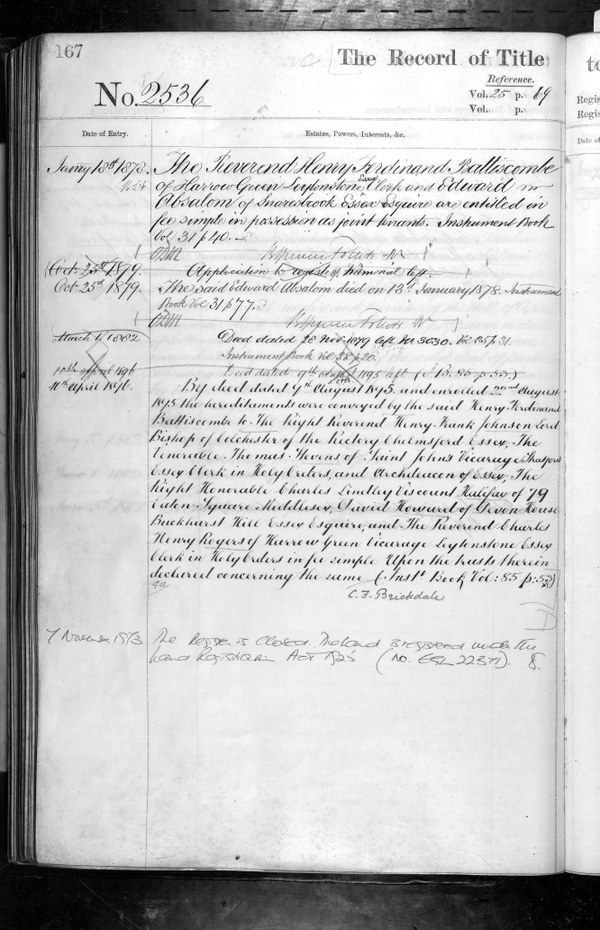 167
The Record of Title
Reference.
No. 2536
Vol. 25 p. 69
Vol. p.
Date of Entry.
Estates, Powers, Interests, &c.
Janry 18th 1878.
The Reverend Henry Ferdinand Battiscombe
of Harrow Green Leytonstone Essex Clerk and Edward
Absalom of Snaresbrook Essex Esquire are entitled in
fee simple in possession as joint tenants. Instrument Book
Vol. 31 p 40.
Oct. 25th 1879.
Application to register Memorial left.
Oct. 25th 1879.
The said Edward Absalom died on 13th January 1878. Instrument
Book Vol 31 p 77.
March 1882
Deed dated 28 Nov. 1879 left No 3030. Vol 25 p 21.
Instrument Book Vol 35 p 20.
10th April 1896
Deed dated 9th August 1895 left (I B. 85 p. 53)
11th April 1896.
By deed dated 9th August 1895 and enrolled 22nd August
1895 the hereditaments were conveyed by the said Henry Ferdinand
Battiscombe to The Right Reverend Henry Frank Johnson Lord
Bishop of Colchester of the Rectory Chelmsford Essex, The
Venerable Thomas Stevens of Saint John's Vicarage Stratford
Essex Clerk in Holy Orders, and Archdeacon of Essex, The
Right Honorable Charles Lindley Viscount Halifax of 79
Eaton Square Middlesex, David Howard of Devon House
Buckhurst Hill Essex Esquire, and The Reverend Charles
Henry Rogers of Harrow Green Vicarage Leytonstone Essex
Clerk in Holy Orders in fee simple Upon the trusts therein
declared concerning the same (Inst. Book Vol: 85 p: 53)
C. F. Brickdale
7 November 1973
The Register is Closed. The land is registered under the
Land Registration Act 1925 (No. EGL 22371).
to
Regis
Regis
Date of